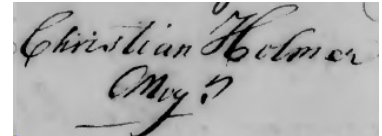 Christian Holmer
Moy?